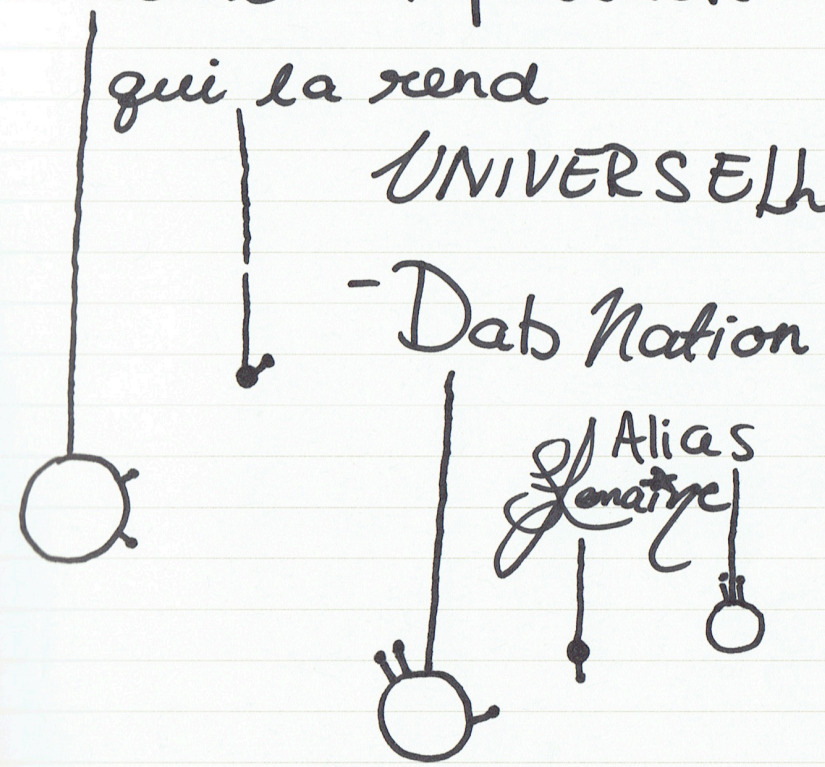 qui la rend
UNIVERSELL
- Dab Nation
Alias